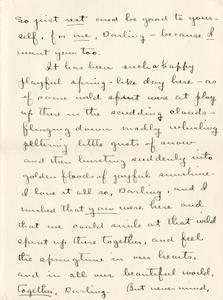 So just rest and be good to your-
self, for me, Darling - because I
want you too.
It has been such a happy
playful spring-like day here - as
if some wild spirit were at play
up there in the scudding clouds -
flinging down madly whirling
pelting little gusts of snow
and then bursting suddenly into
golden floods of joyful sunshine.
I love it all so, Darling, and I
wished that you were here and
that we could smile at that wild
spirit up there together, and feel
the springtime in our hearts,
and in all our beautiful world,
together, Darling. But never mind,